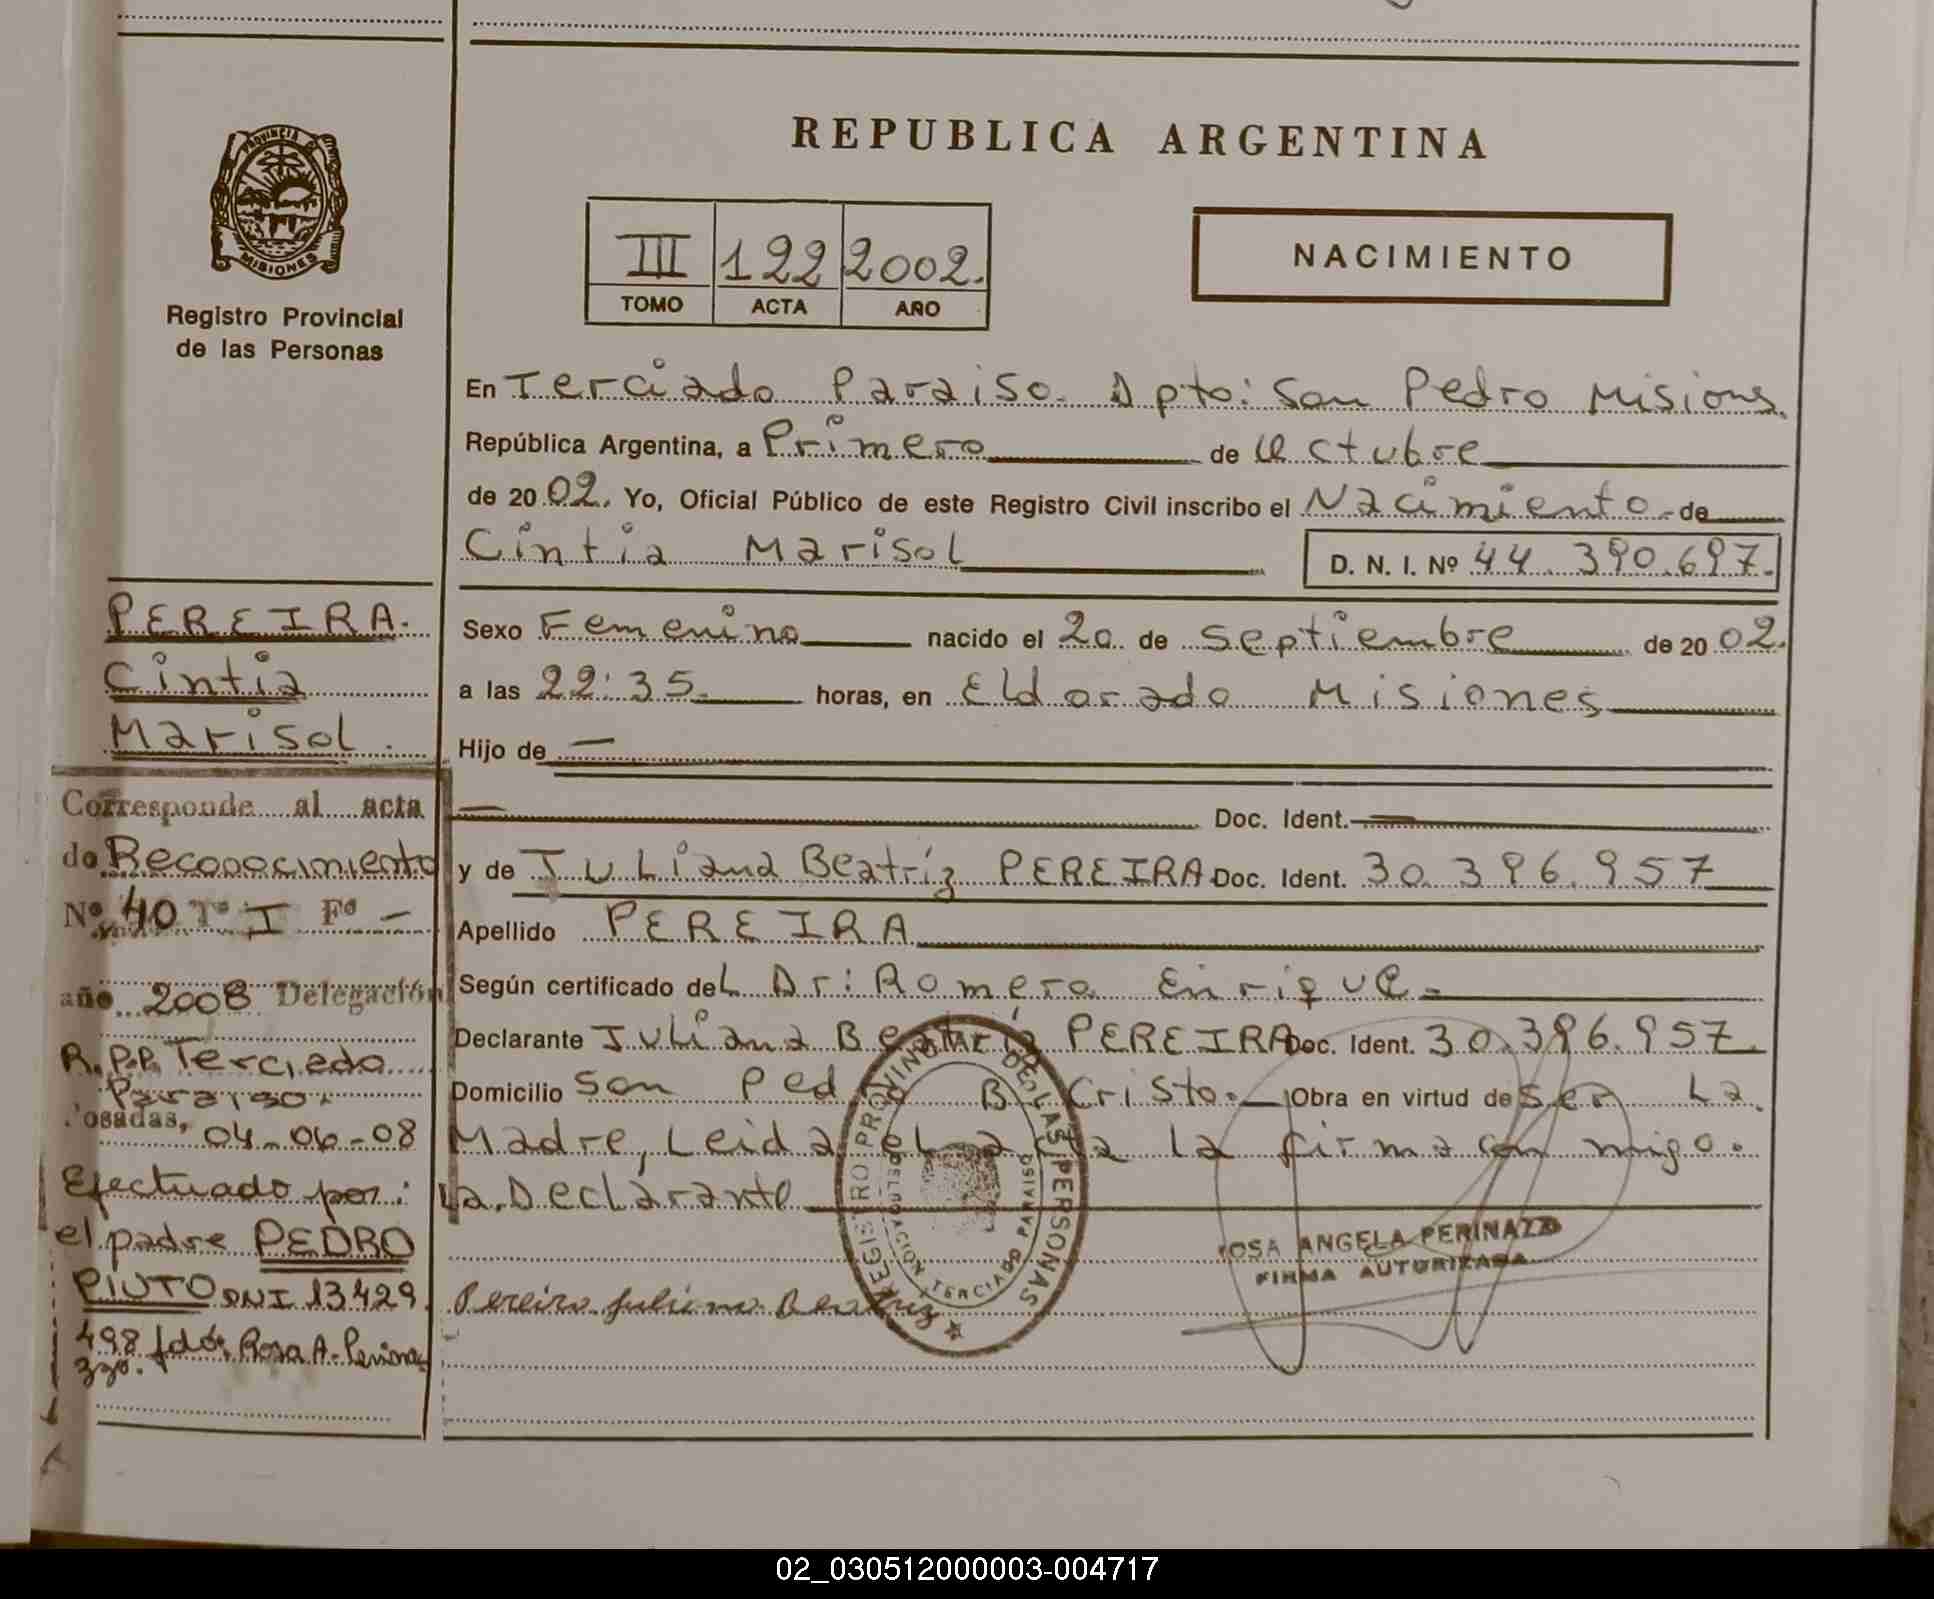 PROVINCIA DE
MISIONES
Registro Provincial
de las Personas
REPUBLICA ARGENTINA
III 122 2002.
TOMO ACTA AÑO
NACIMIENTO
En Terciado Paraiso. Dpto: San Pedro Misions.
República Argentina, a Primero de Octubre
de 2002. Yo, Oficial Público de este Registro Civil inscribo el Nacimiento de
Cintia Marisol
D. N. I. Nº 44.390.697.
Sexo Femenino nacido el 20 de Septiembre de 2002.
a las 22:35. horas, en Eldorado Misiones
Hijo de —
— Doc. Ident. —
y de Juliana Beatríz PEREIRA Doc. Ident. 30.396.957
Apellido PEREIRA
Según certificado del Dr: Romero Enrique.
Declarante Juliana Beatríz PEREIRA Doc. Ident. 30.396.957.
Domicilio San Ped B Cristo. Obra en virtud de ser La
Madre, Leida el acta la firma con migo.
La Declarante
Pereira Juliana Beatriz
REGISTRO PROVINCIAL DE LAS PERSONAS
DELEGACION TERCIADO PARAISO
ROSA ANGELA PERINAZZO
FIRMA AUTORIZADA
PEREIRA.
Cintia
Marisol.
Corresponde al acta
de Reconocimiento
Nº 40 Tº I Fº —
año 2008 Delegación
R.P.P. Terciado
Paraiso.
Posadas, 04-06-08
Efectuado por:
el padre PEDRO
PIUTO DNI 13429.
498 fdo: Rosa A. Perina
zzo.
02_030512000003-004717